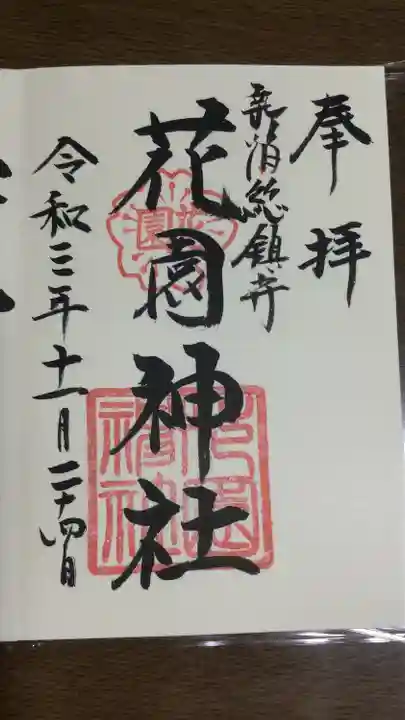 奉拝
新宿総鎮守
花園神社
令和三年十一月二十四日
花園
花園神社